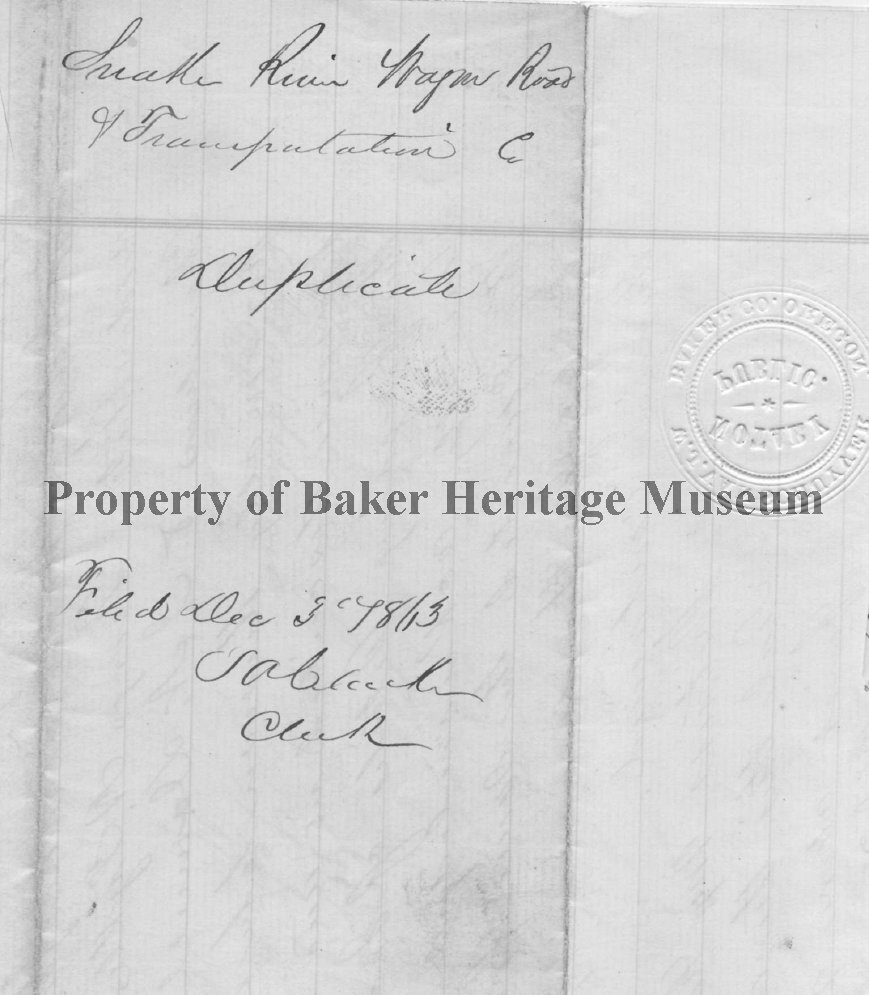 Snake River Wagon Road
& Transportation Co
Duplicate
BAKER CO. OREGON
PUBLIC
NOTARY
Property of Baker Heritage Museum
Filed Dec 3
Clerk